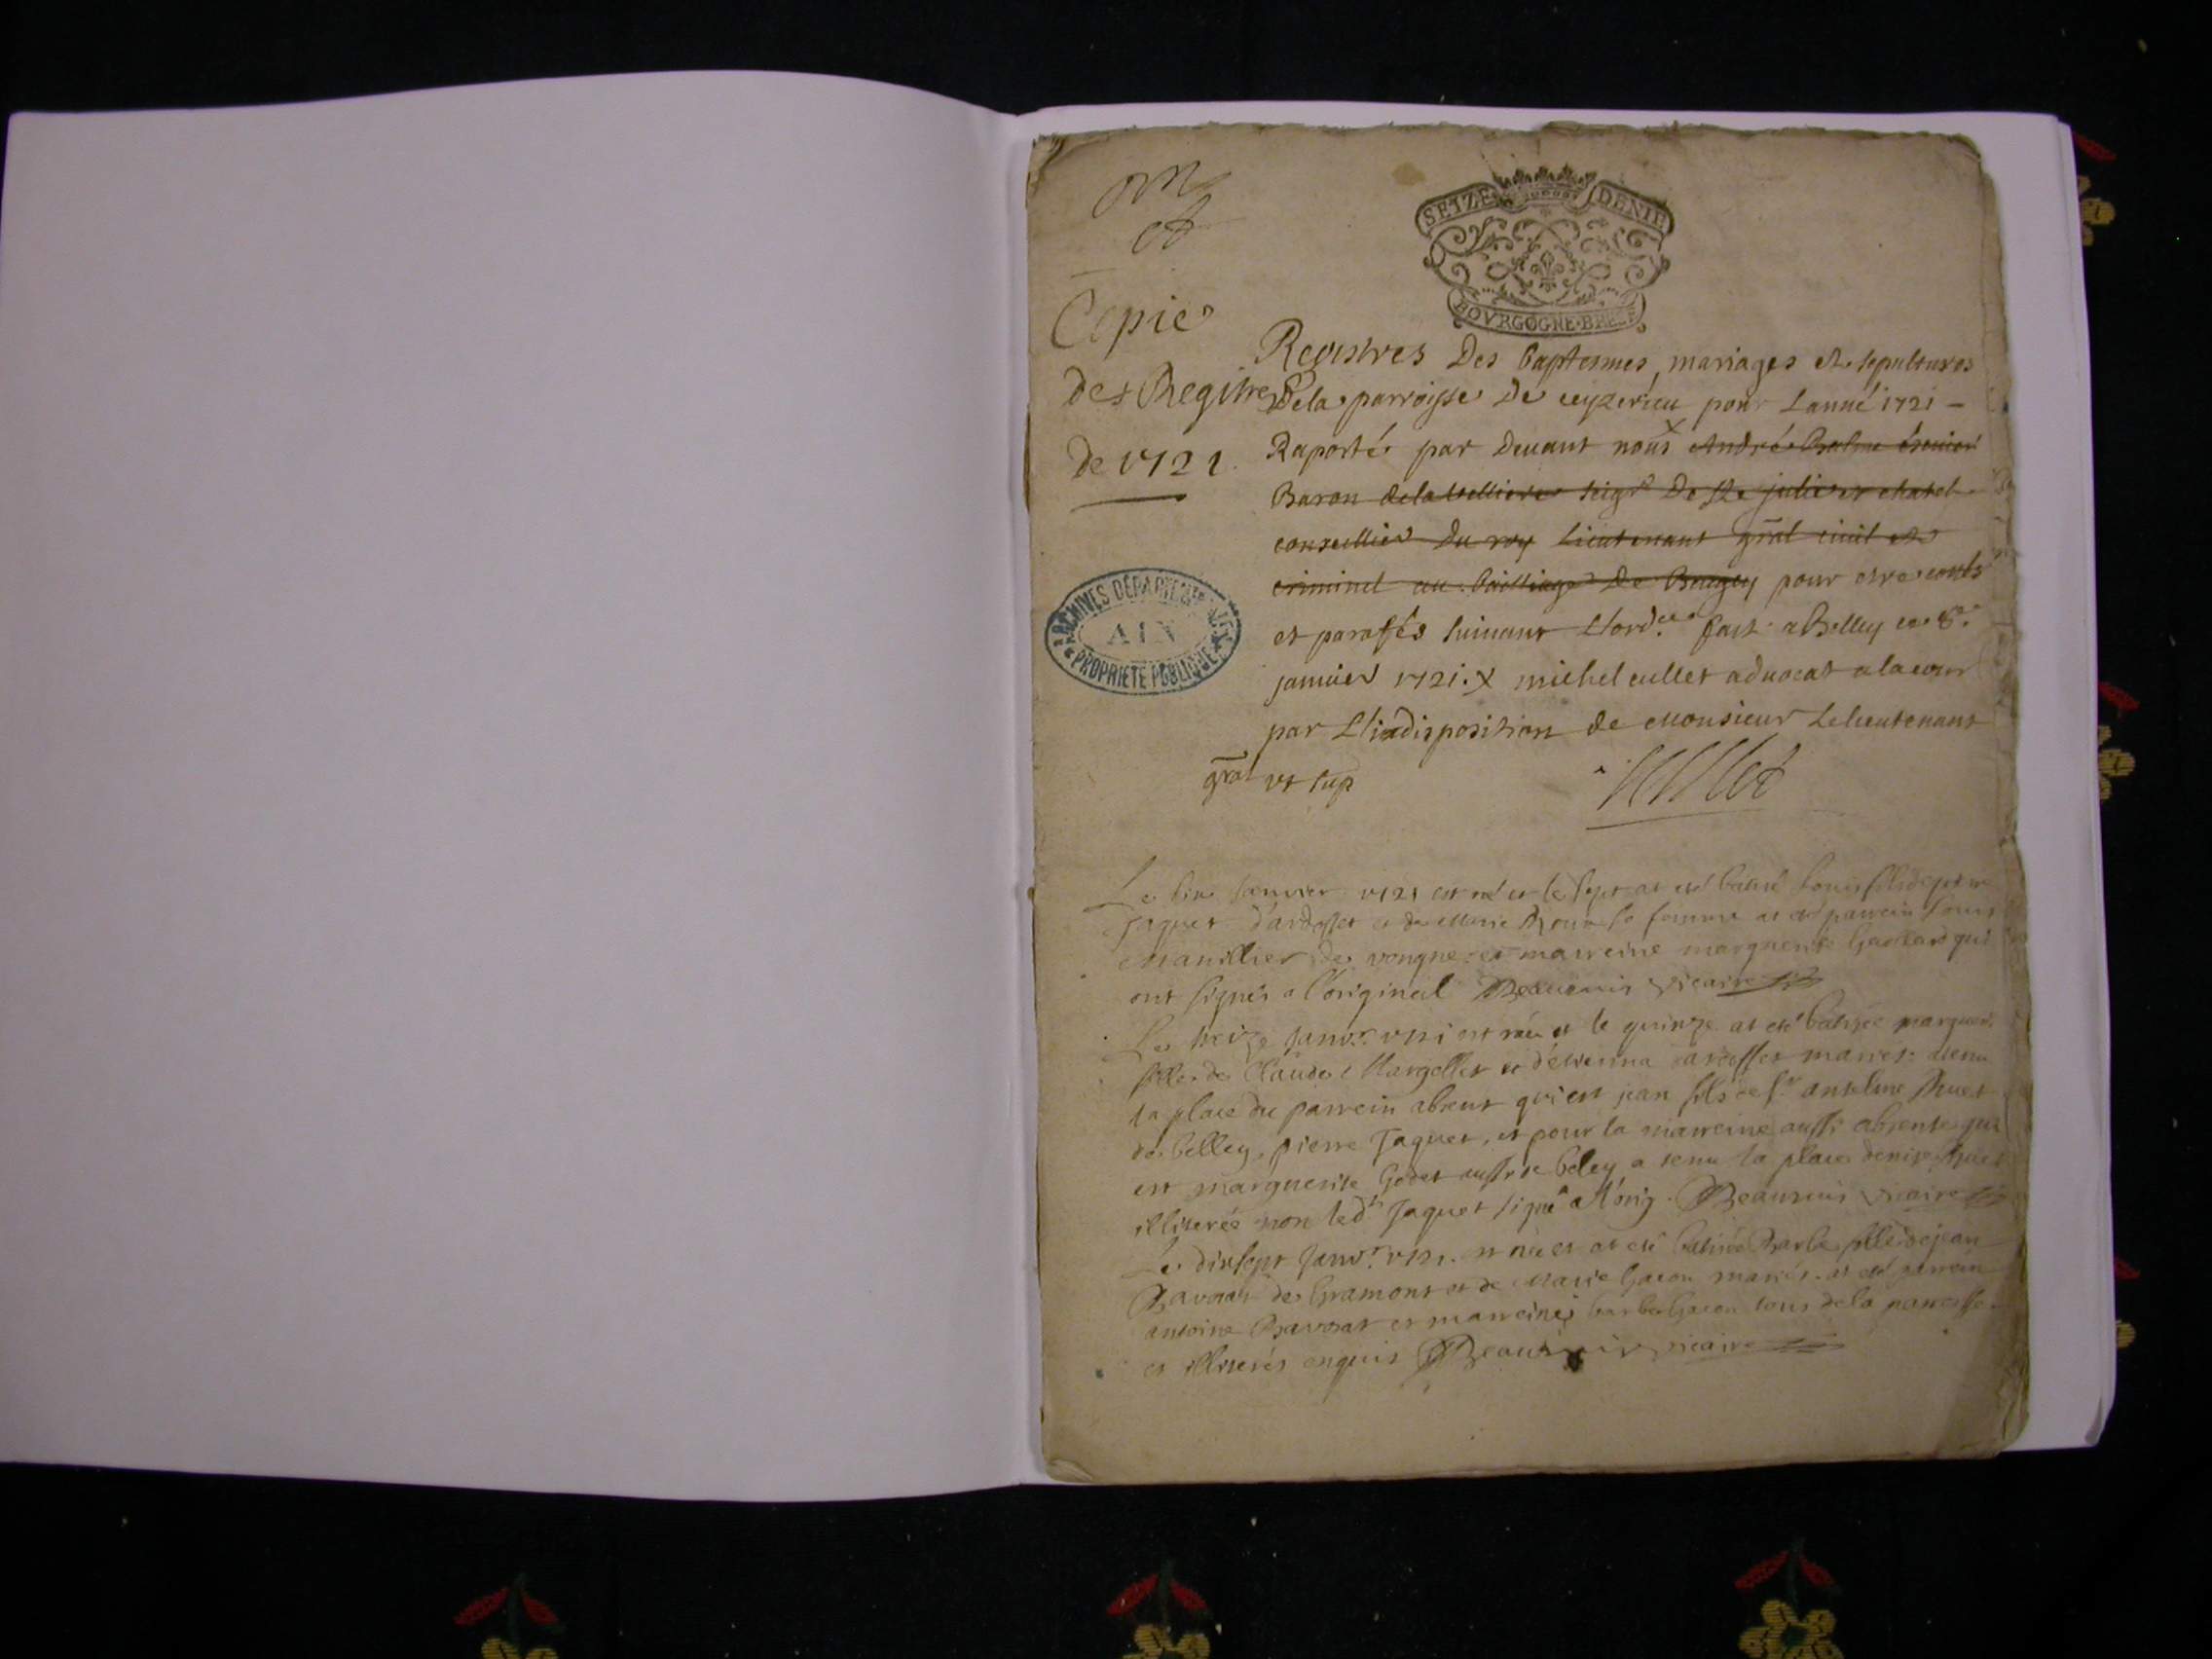 SEIZE DENIE
BOVRGOGNE·BRES
Copie
des Regitres
de 1721.
Registres Des baptesmes, mariages et sepultures
De la parroisse De ceyzerieu pour Lanné 1721 -
Raporté par Deuant nous André
Baron seigr De ste julie et chatel
conseillier Du roy Lieutenant gral ciuil et
criminel au bailliage De Beugey pour estre cottés
et parafés suiuant Lord.ce fait a Belley ce 8.e
januier 1721. X michel cullet aduocat a la cour
par L'indisposition de Monsieur Le lieutenant
gral vt sup
Cullet
ARCHIVES DÉPARTEMENTALES
AIN
PROPRIÉTÉ PUBLIQUE
Le six Janvier 1721 est né et le sept at eté batisé Louis fils de
Jaquet d'ardosset et de Marie sa femme at eté parrein Louis
Manillier de vongne et marreine marguerite Gaillard qui
ont signés a l'original Beauuais vicaire
Le treize Janvr. 1721 est née et le quinze at eté batisée
fille de Claude et d'etienna d'ardosset mariés. a tenu
la place du parrein absent qui est jean fils de sr anselme
de belley, pierre Jaquet, et pour la marreine aussi absente qui
est marguerite Godet aussi de beley a tenu la place denise
illiterée non led.t Jaquet signé a l'orig. Beauuais vicaire
Le dixsept Janvr. 1721. est née et at eté batisée Barbe fille de jean
de Gramont et de Marie mariés. at eté parrein
antoine et marreine barbe tous de la paroisse
et illiterés enquis Beauuais vicaire